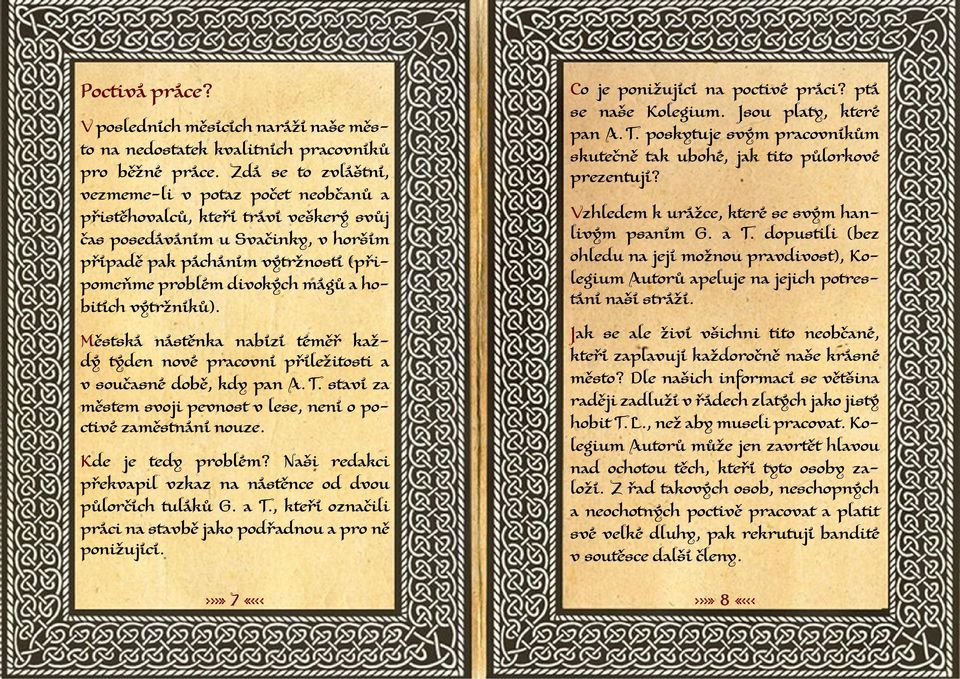 Poctivá práce?
V posledních měsících naráží naše měs-
to na nedostatek kvalitních pracovníků
pro běžné práce. Zdá se to zvláštní,
vezmeme-li v potaz počet neobčanů a
přistěhovalců, kteří tráví veškerý svůj
čas posedáváním u Svačinky, v horším
případě pak pácháním výtržností (při-
pomeňme problém divokých mágů a ho-
bitích výtržníků).
Městská nástěnka nabízí téměř kaž-
dý týden nové pracovní příležitosti a
v současné době, kdy pan A. T. staví za
městem svoji pevnost v lese, není o po-
ctivé zaměstnání nouze.
Kde je tedy problém? Naši redakci
překvapil vzkaz na nástěnce od dvou
půlorčích tuláků G. a T., kteří označili
práci na stavbě jako podřadnou a pro ně
ponižující.
»»» 7 «‹‹‹
Co je ponižující na poctivé práci? ptá
se naše Kolegium. Jsou platy, které
pan A. T. poskytuje svým pracovníkům
skutečně tak ubohé, jak tito půlorkové
prezentují?
Vzhledem k urážce, které se svým han-
livým psaním G. a T. dopustili (bez
ohledu na její možnou pravdivost), Ko-
legium Autorů apeluje na jejich potres-
tání naší stráží.
Jak se ale živí všichni tito neobčané,
kteří zaplavují každoročně naše krásné
město? Dle našich informací se většina
raději zadluží v řádech zlatých jako jistý
hobit T. L., než aby museli pracovat. Ko-
legium Autorů může jen zavrtět hlavou
nad ochotou těch, kteří tyto osoby za-
loží. Z řad takových osob, neschopných
a neochotných poctivě pracovat a platit
své velké dluhy, pak rekrutují bandité
v soutěsce další členy.
»»» 8 «‹‹‹